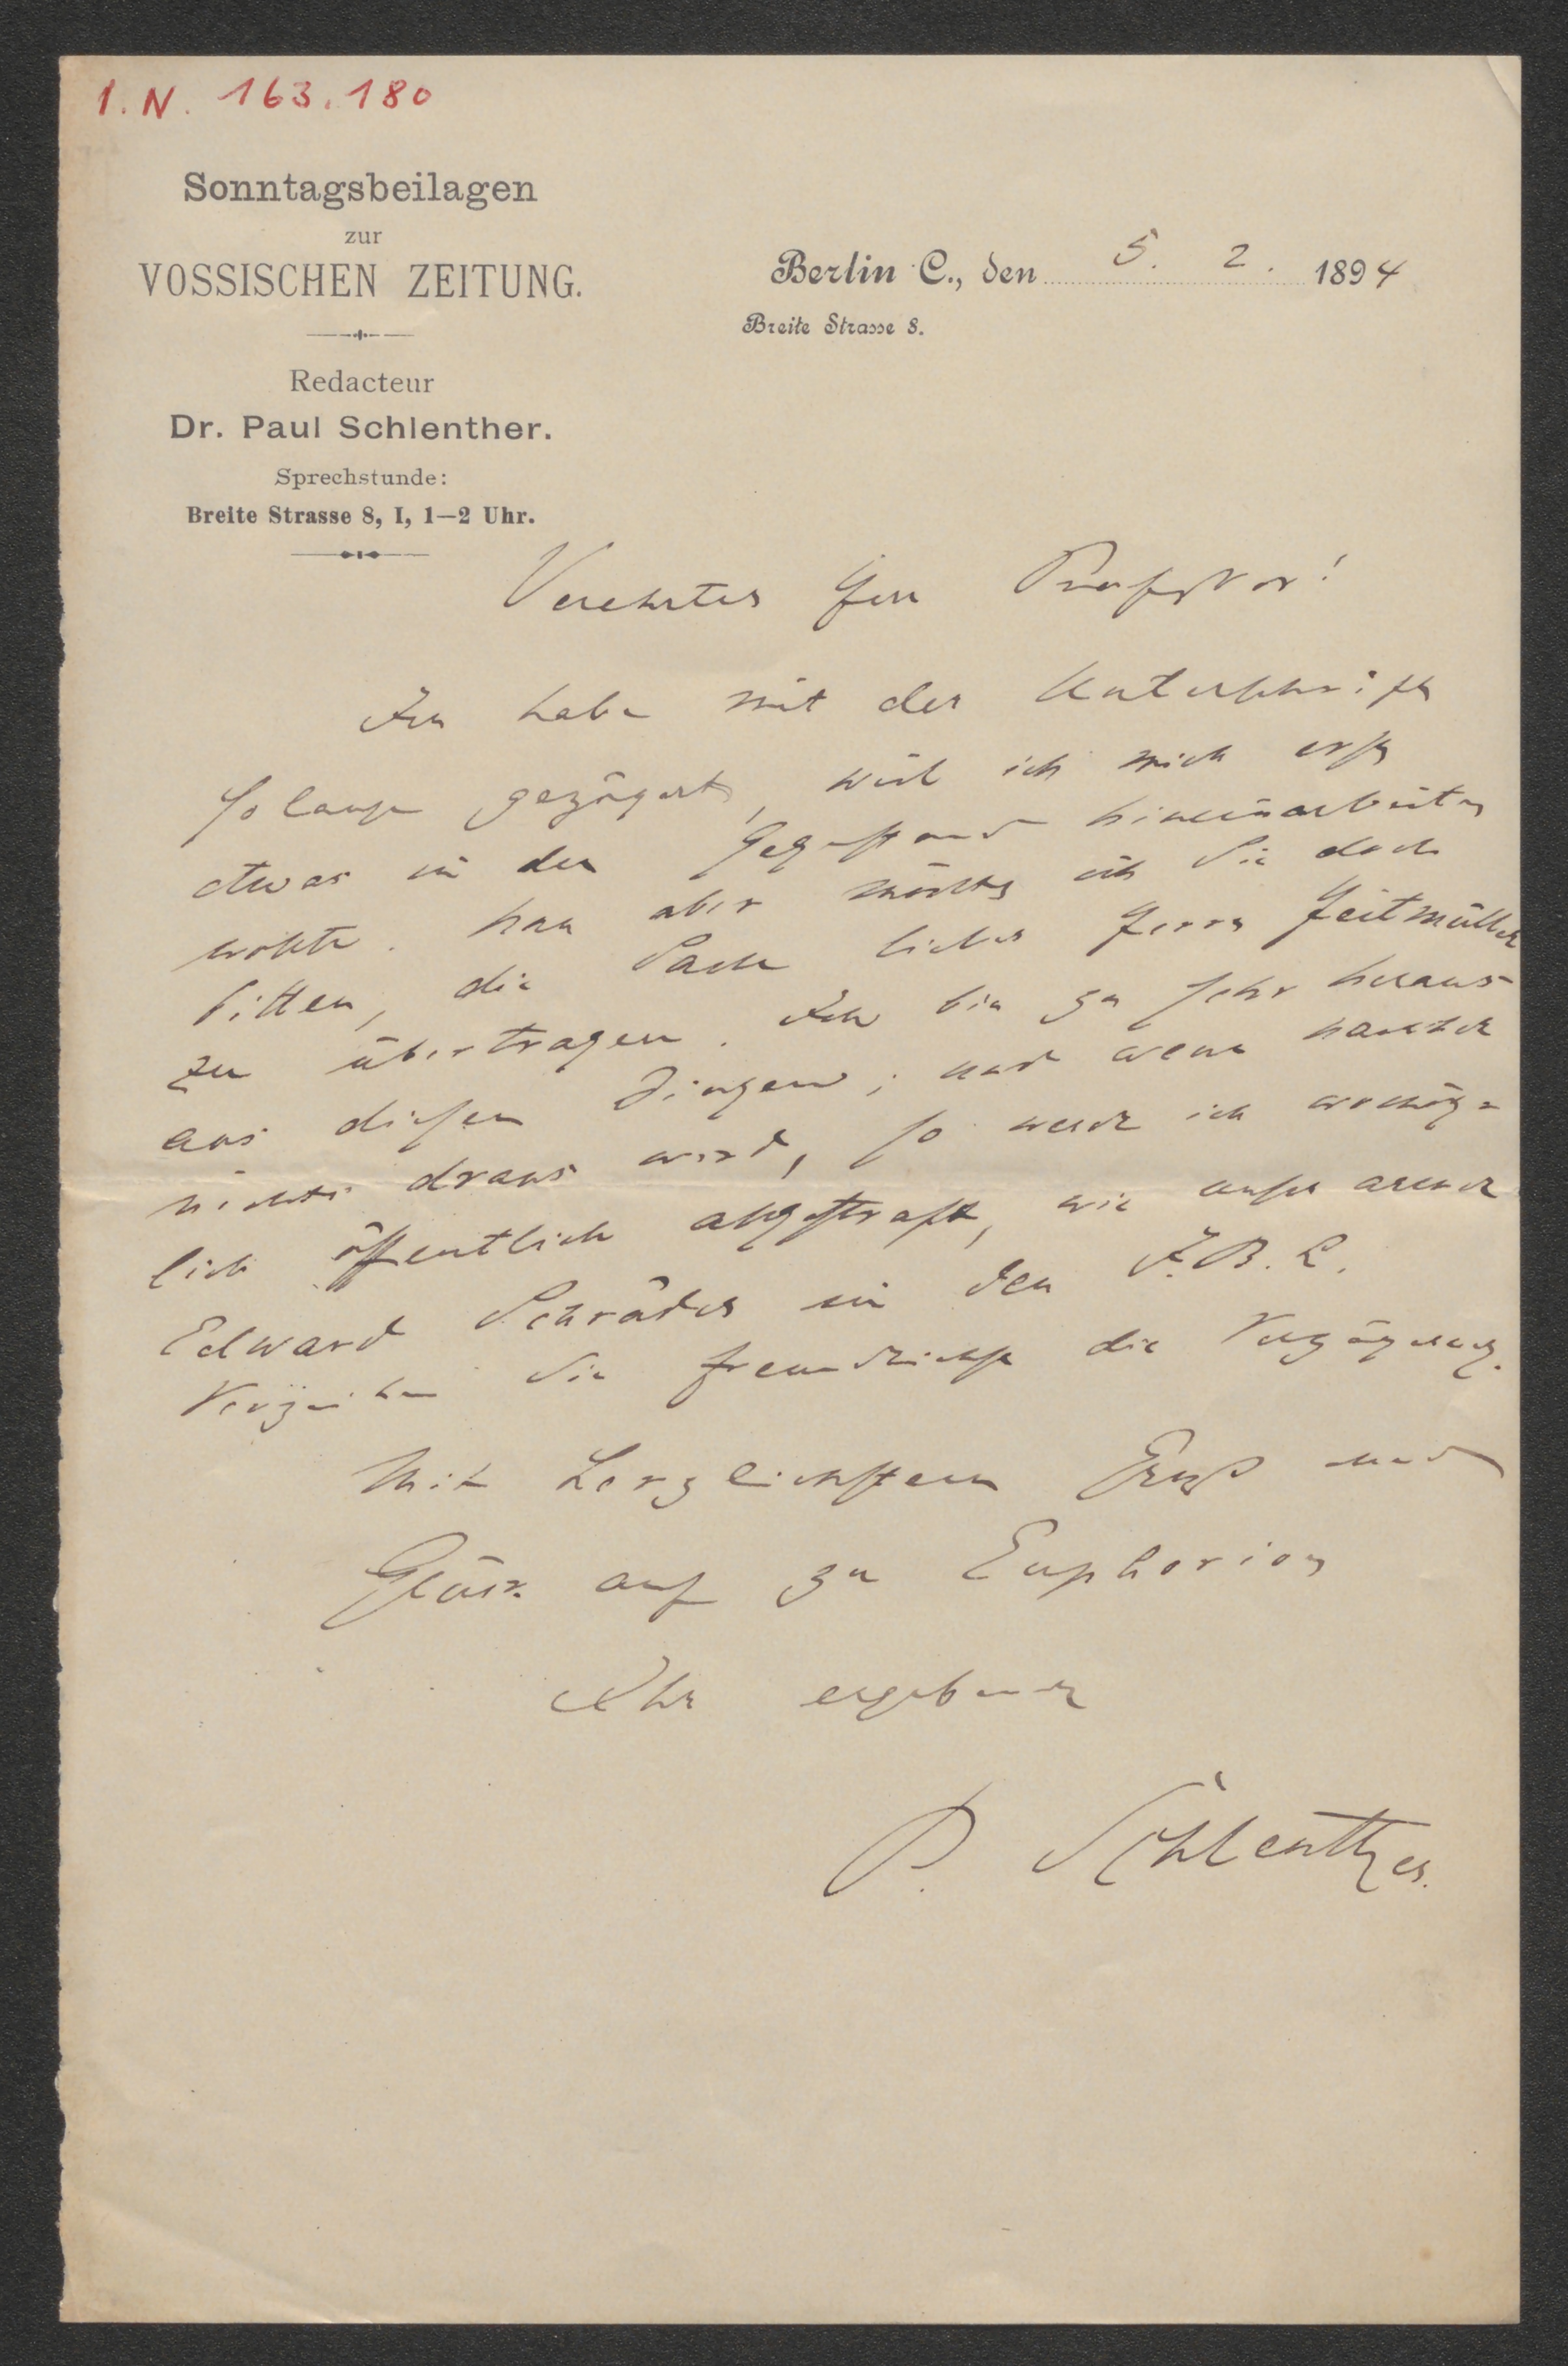 I. N. 163.180
Sonntagsbeilagen
zur
VOSSISCHEN ZEITUNG.
Redacteur
Dr. Paul Schlenther.
Sprechstunde:
Breite Strasse 8, I, 1—2 Uhr.
Berlin C., den 5. 2. 1894
Breite Strasse 8.
Verehrter Herr Professor!
Ich habe mit der Unterschrift
so lange gezögert, weil ich mich erst
etwas in den Gegenstand hineinarbeiten
wollte. Nun aber möchte ich Sie doch
bitten, die Sache lieber Herrn Zeitmüller
zu übertragen. Ich bin zu sehr heraus
aus diesen Dingen; und wenn
nichts draus wird, so werde ich womög=
lich öffentlich abgestraft, wie unser armer
Edward Schröder in den J.B.L.
Verzeihen Sie freundlichst die Verzögerung.
Mit herzlichstem Gruß und
Glück auf zu Euphorion
Ihr ergebener
P. Schlenther.